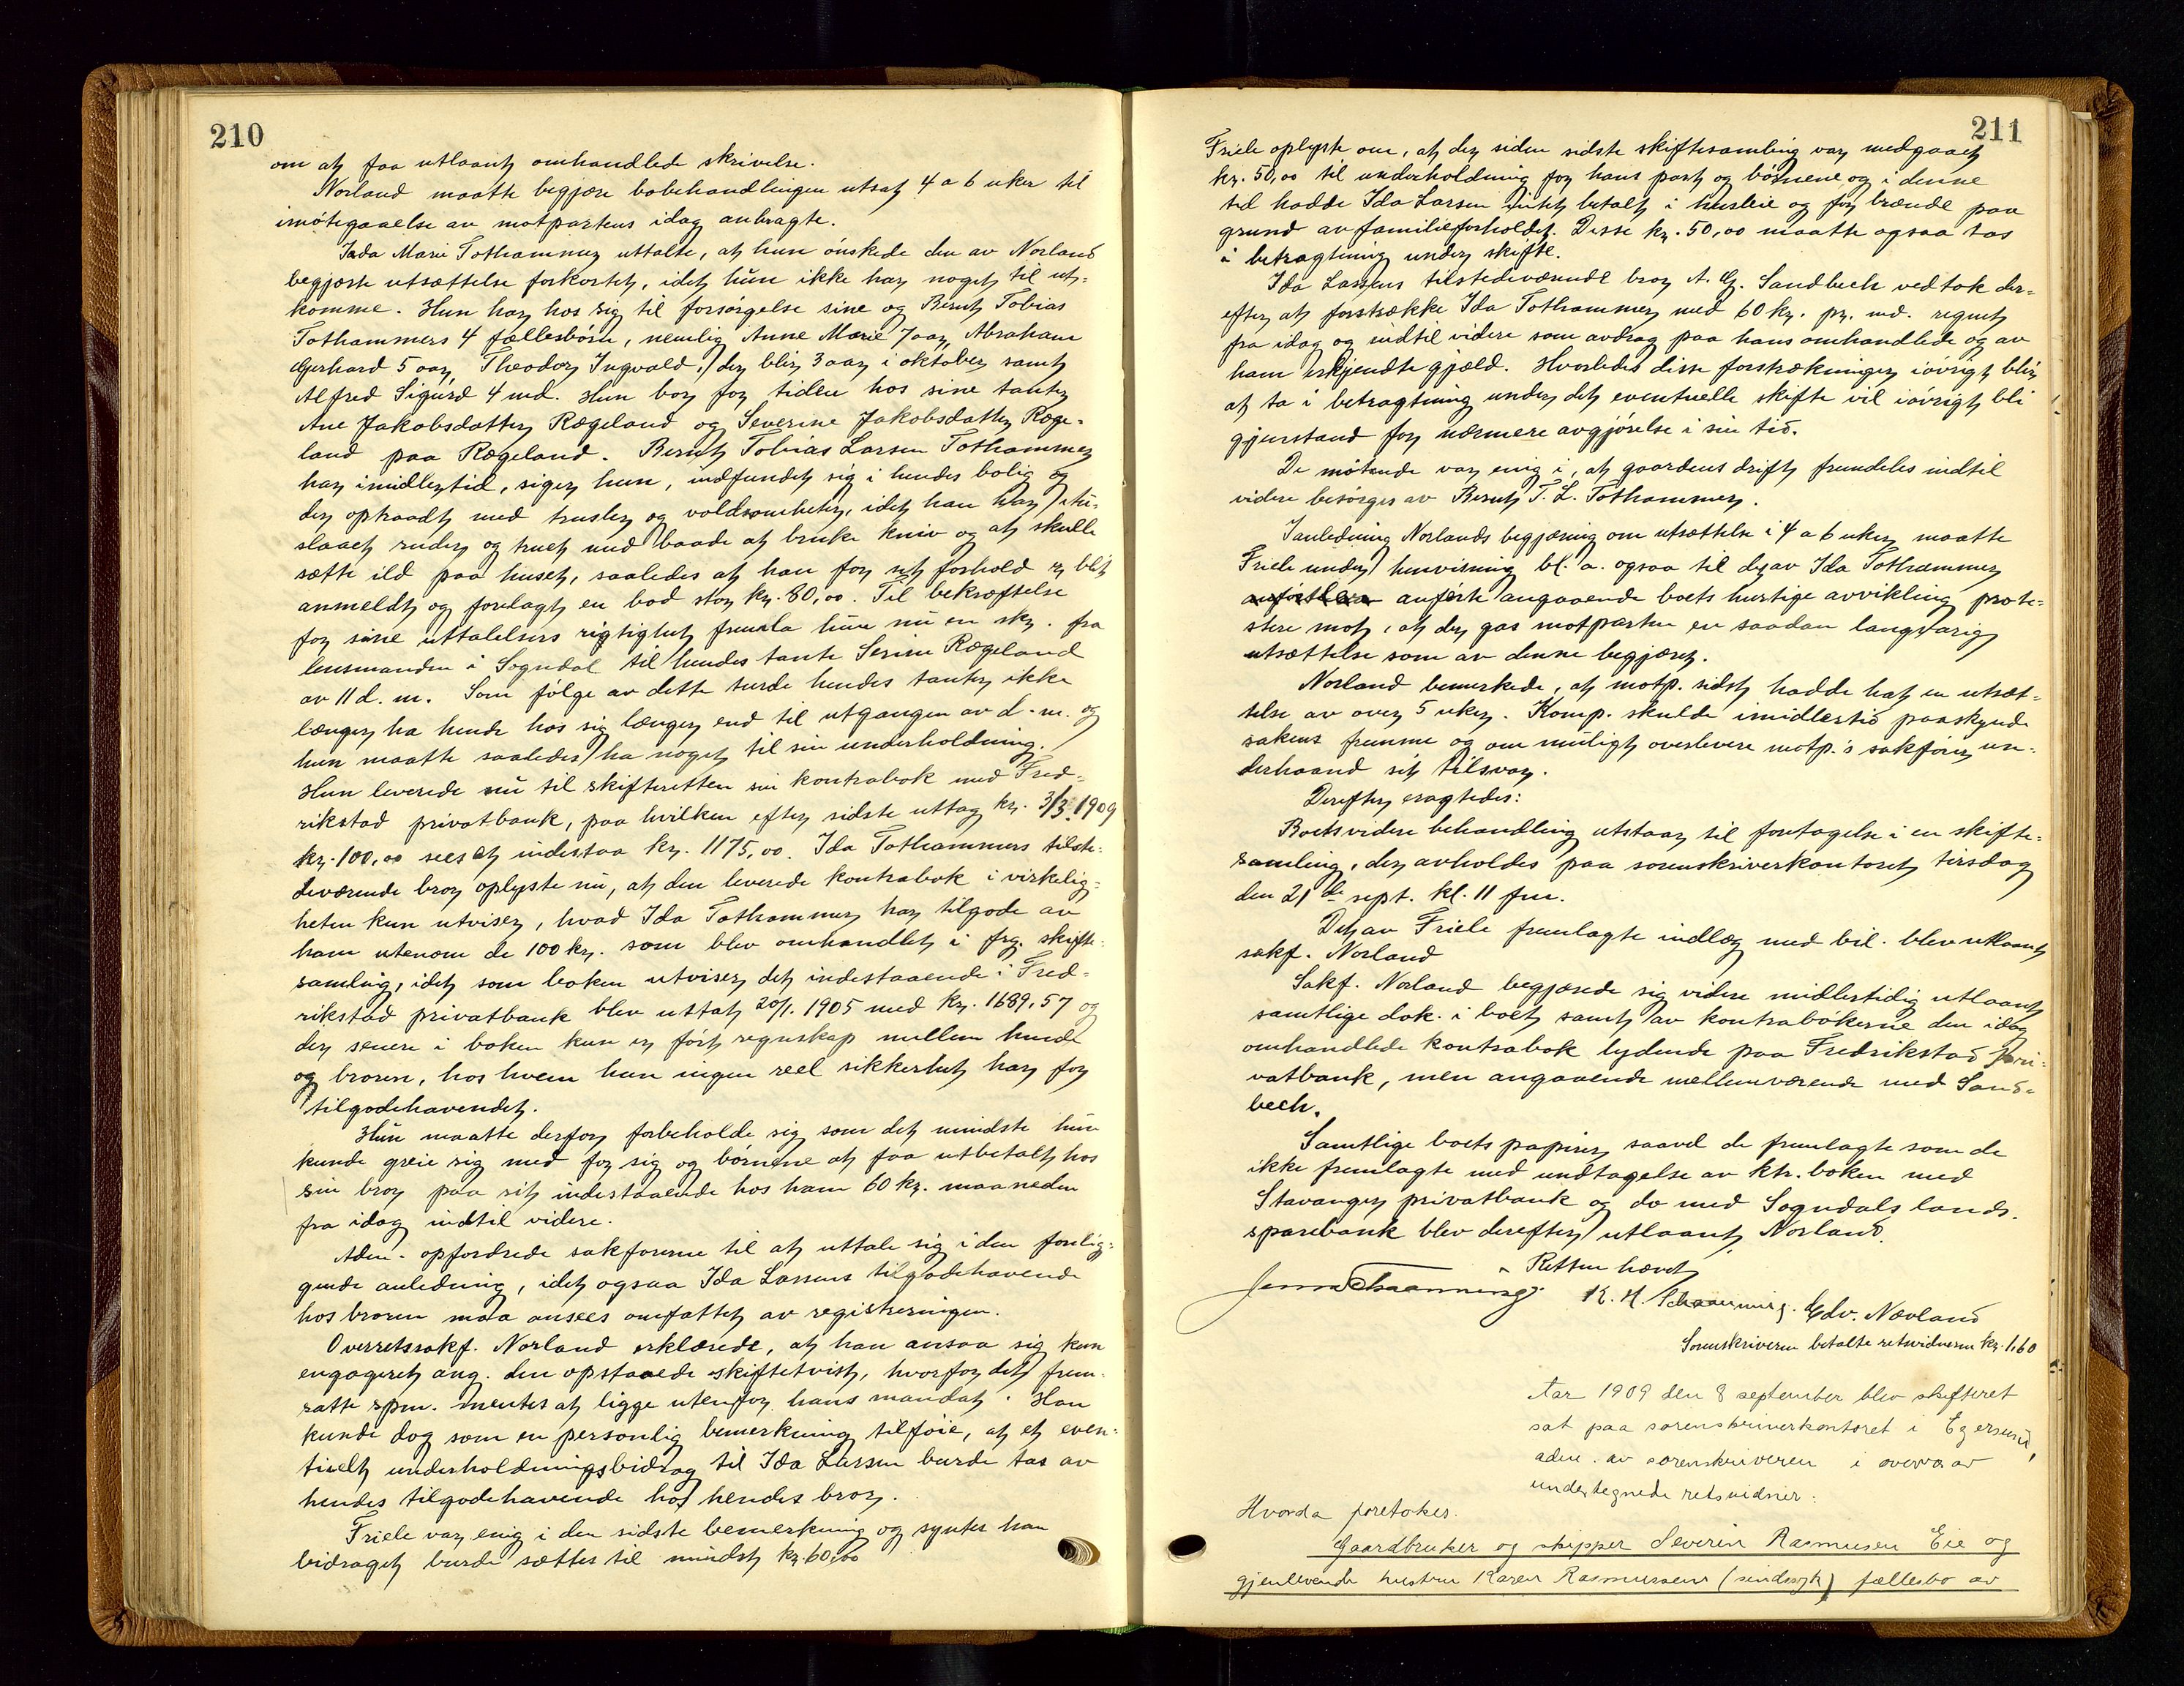 210
om at faa utlaant omhandlede skrivelse.
Norland maatte begjære bobehandlingen utsat 4 a 6 uker til
imøtegaaelse av motpartens idag anbragte.
Ida Marie Tothammer uttalte, at hun ønskede den av Norland
begjærte utsættelse forkortet, idet hun ikke har noget til ut-
komme. Hun har hos sig til forsørgelse sine og Berent Tobias
Tothammers 4 fællesbørn, nemlig Anne Marie 7 aar, Abraham
Gerhard 5 aar, Theodor Ingvald, der blir 3 aar i oktober samt
Alfred Sigurd 4 md. Hun bor for tiden hos sine tanter
Ane Jakobsdatter Rægeland og Severine Jakobsdatter Ræge-
land paa Rægeland. Berent Tobias Larsen Tothammer
har imidlertid, siger hun, indfundet sig i hendes bolig og
der optraadt med trusler og voldsomheter, idet han har itu-
slaaet ruder og truet med baade at bruke kniv og at skulle
sætte ild paa huset, saaledes at han for sit forhold er blit
anmeldt og forelagt en bod stor kr. 80,00. Til bekræftelse
for sine uttalelsers rigtighet fremla hun nu en skr. fra
lensmanden i Sogndal til hendes tante Serine Rægeland
av 11 d. m. Som følge av dette turde hendes tanter ikke
længer ha hende hos sig længer end til utgangen av d. m. og
hun maatte saaledes ha noget til sin underholdning.
Hun leverede nu til skifteretten sin kontrabok med Fred-
rikstad privatbank, paa hvilken efter sidste uttag kr. 3/3.1909
kr. 100,00 sees at indestaa kr. 1175,00. Ida Tothammers tilste-
deværende bror oplyste nu, at den leverede kontrabok i virkelig-
heten kun utviser, hvad Ida Tothammer har tilgode av
ham utenom de 100 kr. som blev omhandlet i frg. skifte-
samling, idet som boken utviser det indestaaende i Fred-
rikstad privatbank blev uttat 20/1. 1905 med kr. 1689,57 og
der senere i boken kun er ført regnskap mellem hende
og broren, hos hvem hun ingen reel sikkerhet har for
tilgodehavendet.
Hun maatte derfor forbeholde sig som det mindste hun
kunde greie sig med for sig og børnene at faa utbetalt hos
sin bror paa sit indestaaende hos ham 60 kr. maaneden
fra idag indtil videre.
Adm. opfordrede sakførerne til at uttale sig i den forelig-
gende anledning, idet ogsaa Ida Larsens tilgodehavende
hos broren maa ansees omfattet av registreringen.
Overretssakf. Norland erklærede, at han ansaa sig kun
engageret ang. den opstaaede skiftetvist, hvorfor det frem-
satte spm. mentes at ligge utenfor hans mandat. Han
kunde dog som en personlig bemerkning tilføie, at et even-
tuelt underholdningsbidrag til Ida Larsen burde tas av
hendes tilgodehavende hos hendes bror.
Friele var enig i den sidste bemerkning og syntes han
bidraget burde sættes til mindst kr. 60,00
211
Friele oplyste om, at der siden sidste skiftesamling var medgaaet
kr. 50,00 til underholdning for hans part og børnene og i denne
tid hadde Ida Larsen intet betalt i husleie og for brænde paa
grund av familieforholdet. Disse kr. 50,00 maatte ogsaa tas
i betragtning under skifte.
Ida Larsens tilstedeværende bror A. G. Sandbech vedtok der-
efter at forstrække Ida Tothammer med 60 kr. pr. md. regnet
fra idag og indtil videre som avdrag paa hans omhandlede og av
ham erkjendte gjæld. Hvorledes disse forstrækninger iøvrigt blir
at ta i betragtning under det eventuelle skifte vil iøvrigt bli
gjenstand for nærmere avgjørelse i sin tid.
De møtende var enig i, at gaardens drift fremdeles indtil
videre besørges av Berent T. L. Tothammer.
I anledning Norlands begjæring om utsættelse i 4 a 6 uker maatte
Friele under henvisning bl. a. ogsaa til det av Ida Tothammer
anførte angaaende boets hurtige avvikling prote-
stere mot, at der gas motparten en saadan langvarig
utsættelse som av denne begjæret.
Norland bemerkede, at motp. sidst hadde hat en utsæt-
telse av over 5 uker. Komp. skulde imidlertid paaskynde
sakens fremme og om muligt overlevere motp.'s sakfører un-
derhaand sit tilsvar.
Derefter eragtedes:
Boets videre behandling utstaar til foretagelse i en skifte-
samling, der avholdes paa sorenskriverkontoret tirsdag
den 21de sept. kl. 11 fm.
Det av Friele fremlagte indlæg med bil. blev utlaant
sakf. Norland
Sakf. Norland begjærede sig videre midlertidig utlaant
samtlige dok. i boet samt av kontrabøkerne den idag
omhandlede kontrabok lydende paa Fredrikstad pri-
vatbank, men angaaende mellemværende med Sand-
bech.
Samtlige boets papirer saavel de fremlagte som de
ikke fremlagte med undtagelse av ktr. boken med
Stavanger privatbank og do med Sogndals lands.
sparebank blev derefter utlaant Norland.
Retten hævet
Schaanning. K. H. Schaanning. Edv. Nævland
Sorenskriveren betalte retsvidnerne kr. 1,60
Aar 1909 den 8 september blev skifteret
sat paa sorenskriverkontoret i Egersund,
adm. av sorenskriveren i overvær av
undertegnede retsvidner:
Hvorda foretokes.
Gaardbruker og skipper Severin Rasmusen Eie og
gjenlevende hustru Karen Rasmussens (sindssyk) fællesbo av